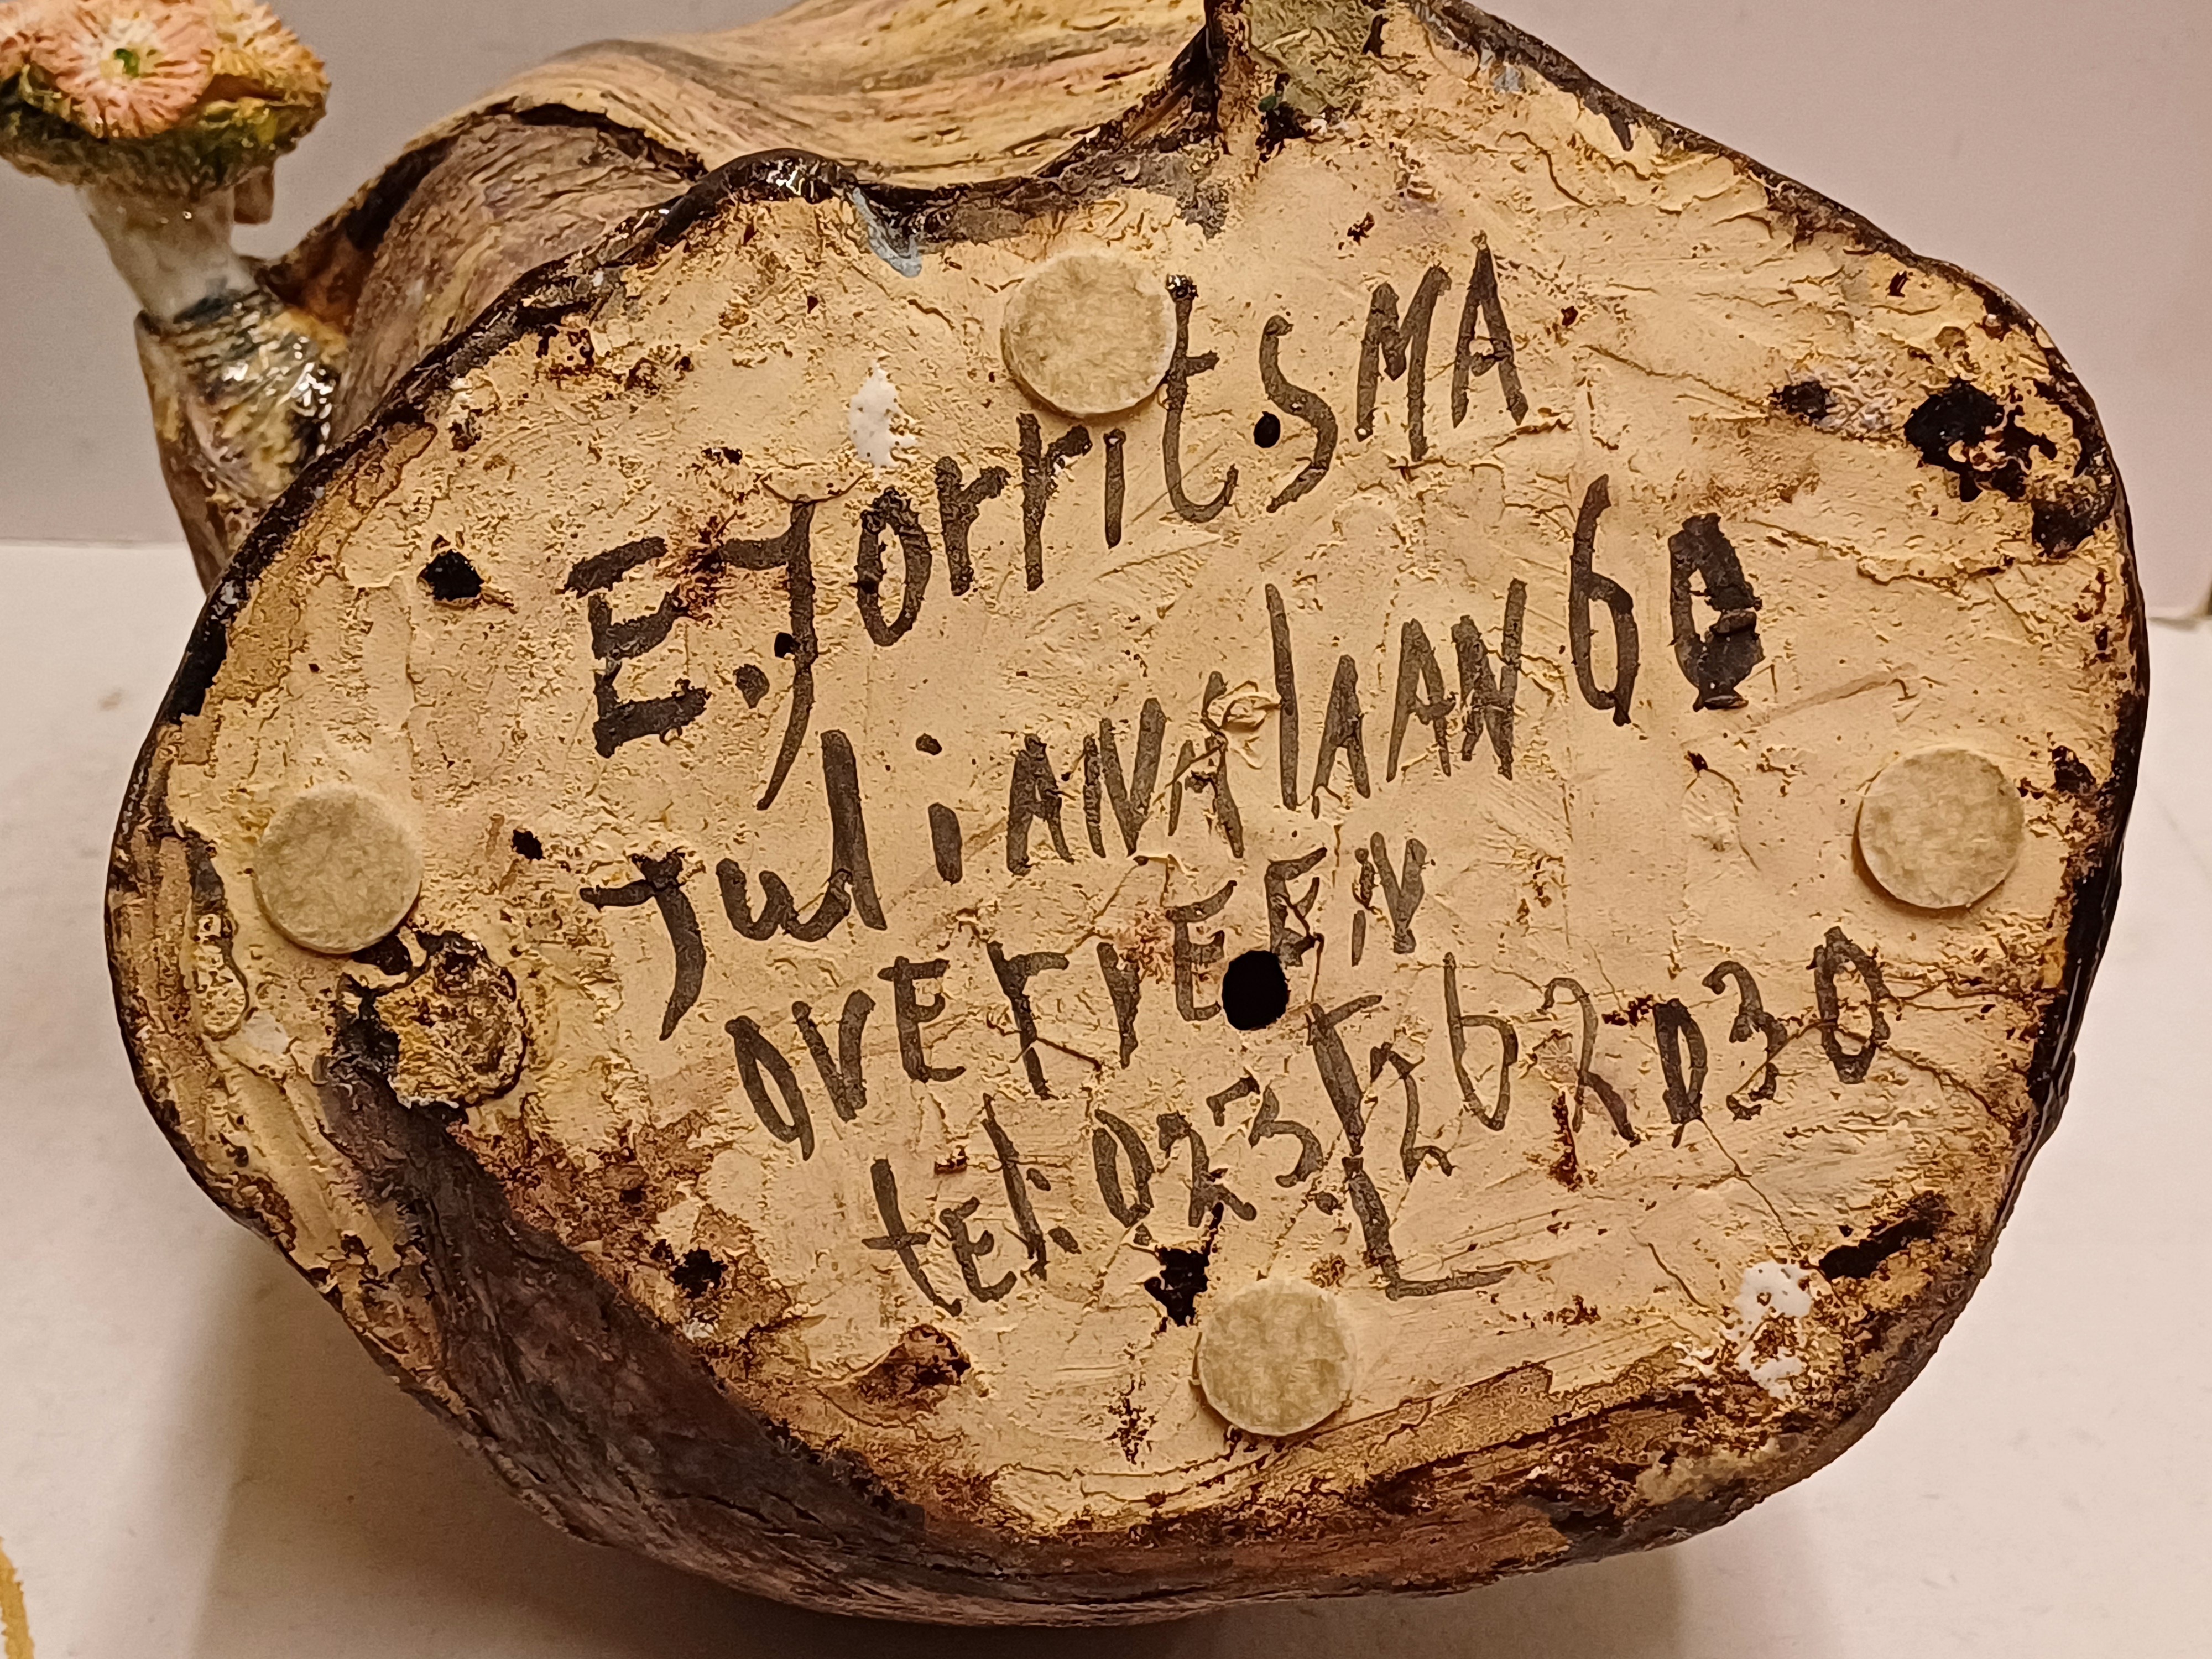 E. JorritSMA
JuliANAlAAN 60
OVErVEEN
tEl. 023 5262030